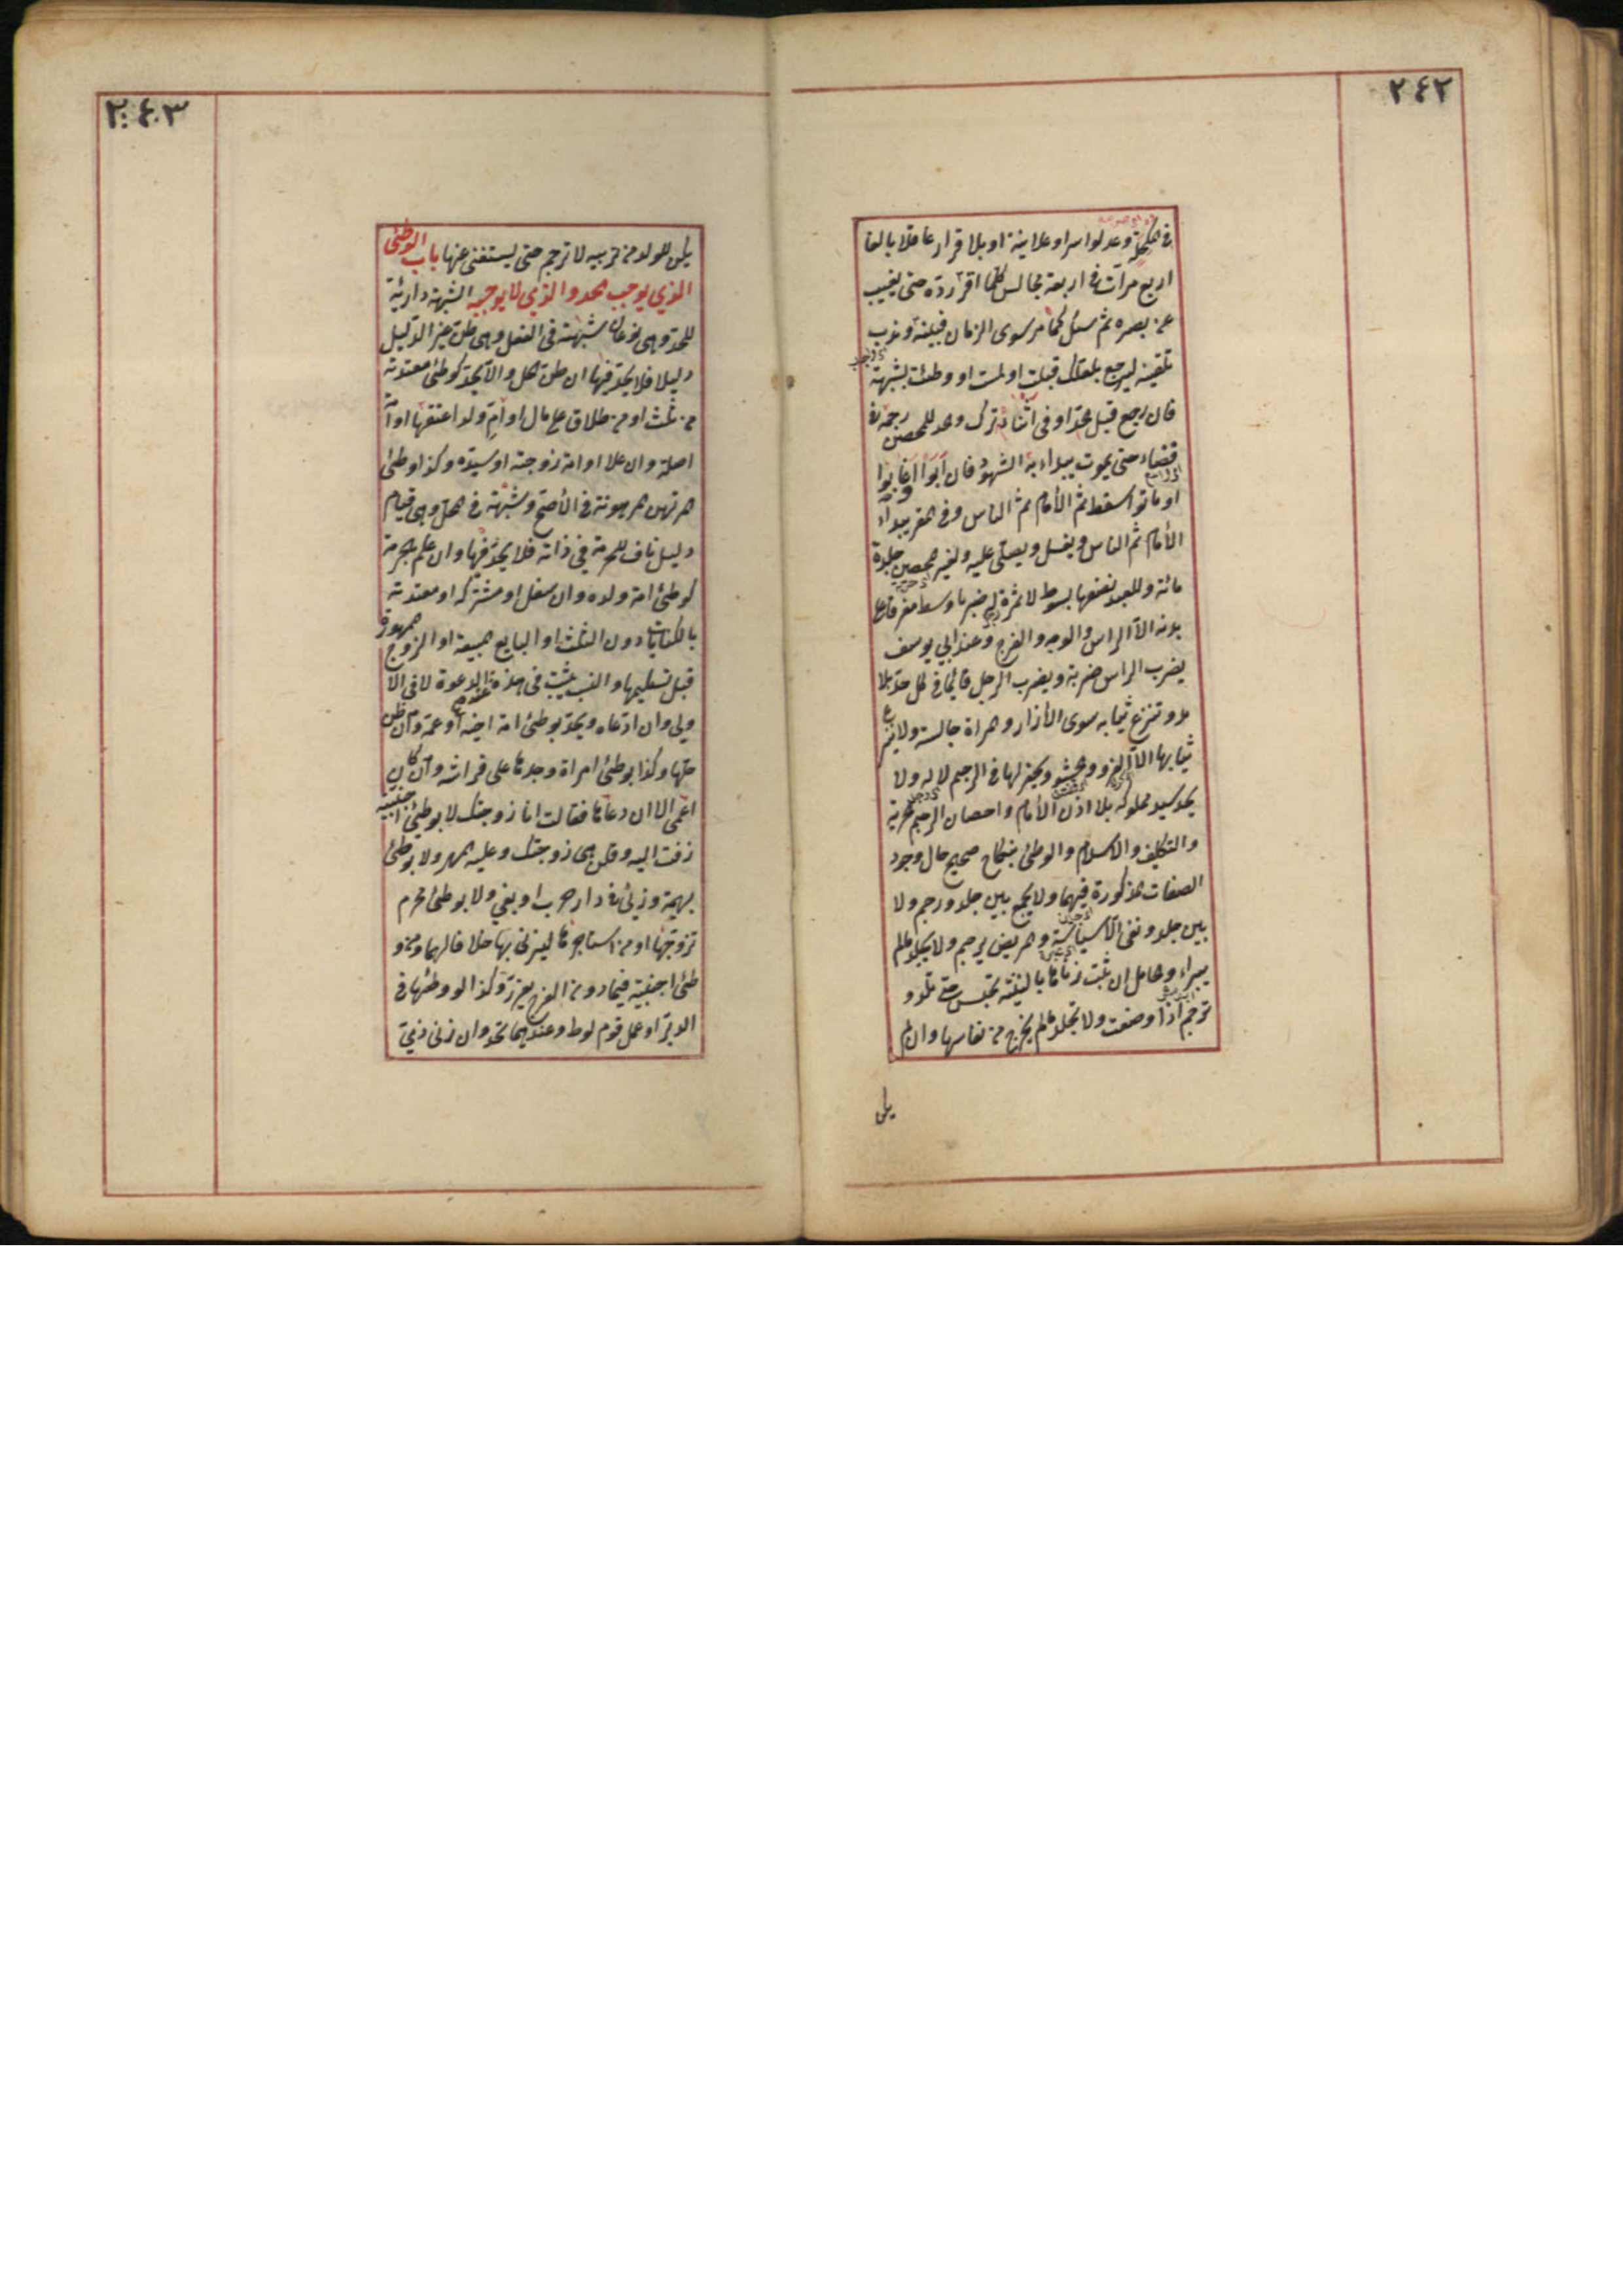 ٢٤٢
في المكحلة وعدلوا سرا وعلانية او بالاقرار عاقلا بالغا
اربع مرات في اربعة مجالس كلما اقر رده حتى يغيب
عن بصره ثم سئل كما مر سوى الزمان فبينه وندب
تلقينه ليرجع بلعلك قبلت او لمست او وطئت بشبهة
فان رجع قبل الحد او في اثنائه ترك وحد للمحصن رجمه في
فضاء حتى يموت يبداء به الشهود فان ابوا او غابوا
او ماتوا سقط ثم الأمام ثم الناس وفي المقر يبداء
الأمام ثم الناس ويغسل ويصلى عليه ولغير المحصن جلدة
مائة وللعبد نصفها بسوط لا ثمرة له ضربا وسطا مفرقا على
بدنه الا الراس والوجه والفرج وعند ابي يوسف
يضرب الراس ضربة ويضرب الرجل قائما في كل حد بلا
مد وتنزع ثيابه سوى الأزار والمراة جالسة ولا ينزع
ثيابها الا الفرو والحشو ويحفر لها في الرجم لا له ولا
يحد سيد مملوكه بلا اذن الأمام واحصان الرجم الحرية
والتكليف والاسلام والوطئ بنكاح صحيح حال وجود
الصفات المذكورة فيهما ولا يجمع بين جلد ورجم ولا
بين جلد ونفي الا سياسة والمريض يرجم ولا يجلد ما لم
يبراء والحامل ان ثبت زناها بالبينة تحبس حتى تلد و
ترجم اذا وضعت ولا تجلد ما لم يخرج من نفاسها وان لم
يكن
٢٤٣
يكن للولد من يربيه لا ترجم حتى يستغني عنها باب الوطئ
الذي يوجب الحد والذي لا يوجبه الشبهة دارئة
للحد وهي نوعان شبهة في الفعل وهي ظن غير الدليل
دليلا فلا يحد فيها ان ظن الحل والا يحد كوطئ معتدته
من ثلث او من طلاق على مال او ام ولد اعتقها او امة
اصله وان علا او امة زوجته او سيده وكذا وطئ
المرتهن المرهونة في الأصح وشبهة في المحل وهي قيام
دليل ناف للحرمة في ذاته فلا يحد فيها وان علم بالحرمة
كوطئ امة ولده وان سفل او مشتركة او معتدته
بالكنايات دون الثلث او البايع المبيعة او الزوج الممهورة
قبل تسليمها والنسب يثبت في هذه عند الدعوة لا في الا
ولى وان ادعاه ويحد بوطئ امة اخيه او عمه وان ظن
حلها وكذا بوطئ امراة وجدها على فراشه وان كان
اعمى الا ان دعاها فقالت انا زوجتك لا بوطئ اجنبية
زفت اليه وقلن هي زوجتك وعليه المهر ولا بوطئ
بهيمة وزنى في دار حرب او بغي ولا بوطئ محرم
تزوجها او من استاجرها ليزني بها خلافا لهما ومن و
طئ اجنبية فيما دون الفرج يعزر وكذا لو وطئها في
الدبر او عمل قوم لوط وعندهما يحد وان زنى ذمي